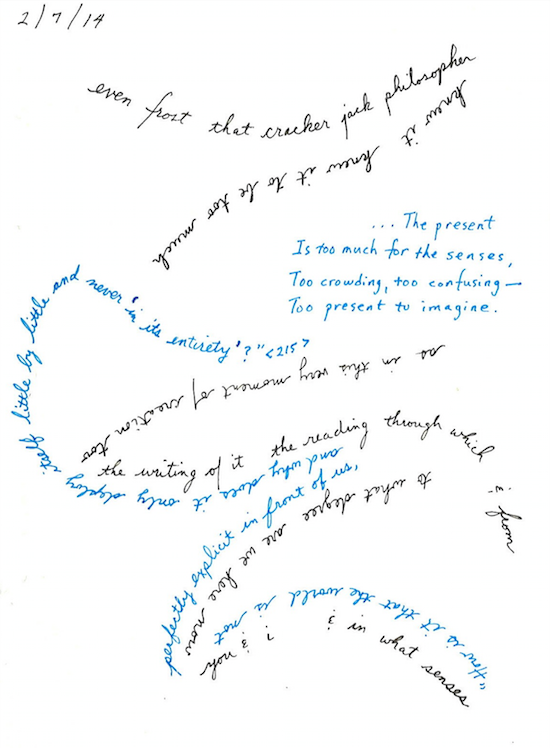 2/7/14
even frost that cracker jack philosopher
knew it knew it to be too much
... The present
Is too much for the senses,
Too crowding, too confusing—
Too present to imagine.
so in this very moment of creation too
the writing of it the reading through which
& from
to what degree are we here now
& in what senses
"How is it that the world is not
perfectly explicit in front of us,
and why does it only deploy
itself little by little and never 'in its entirety'?" <215>